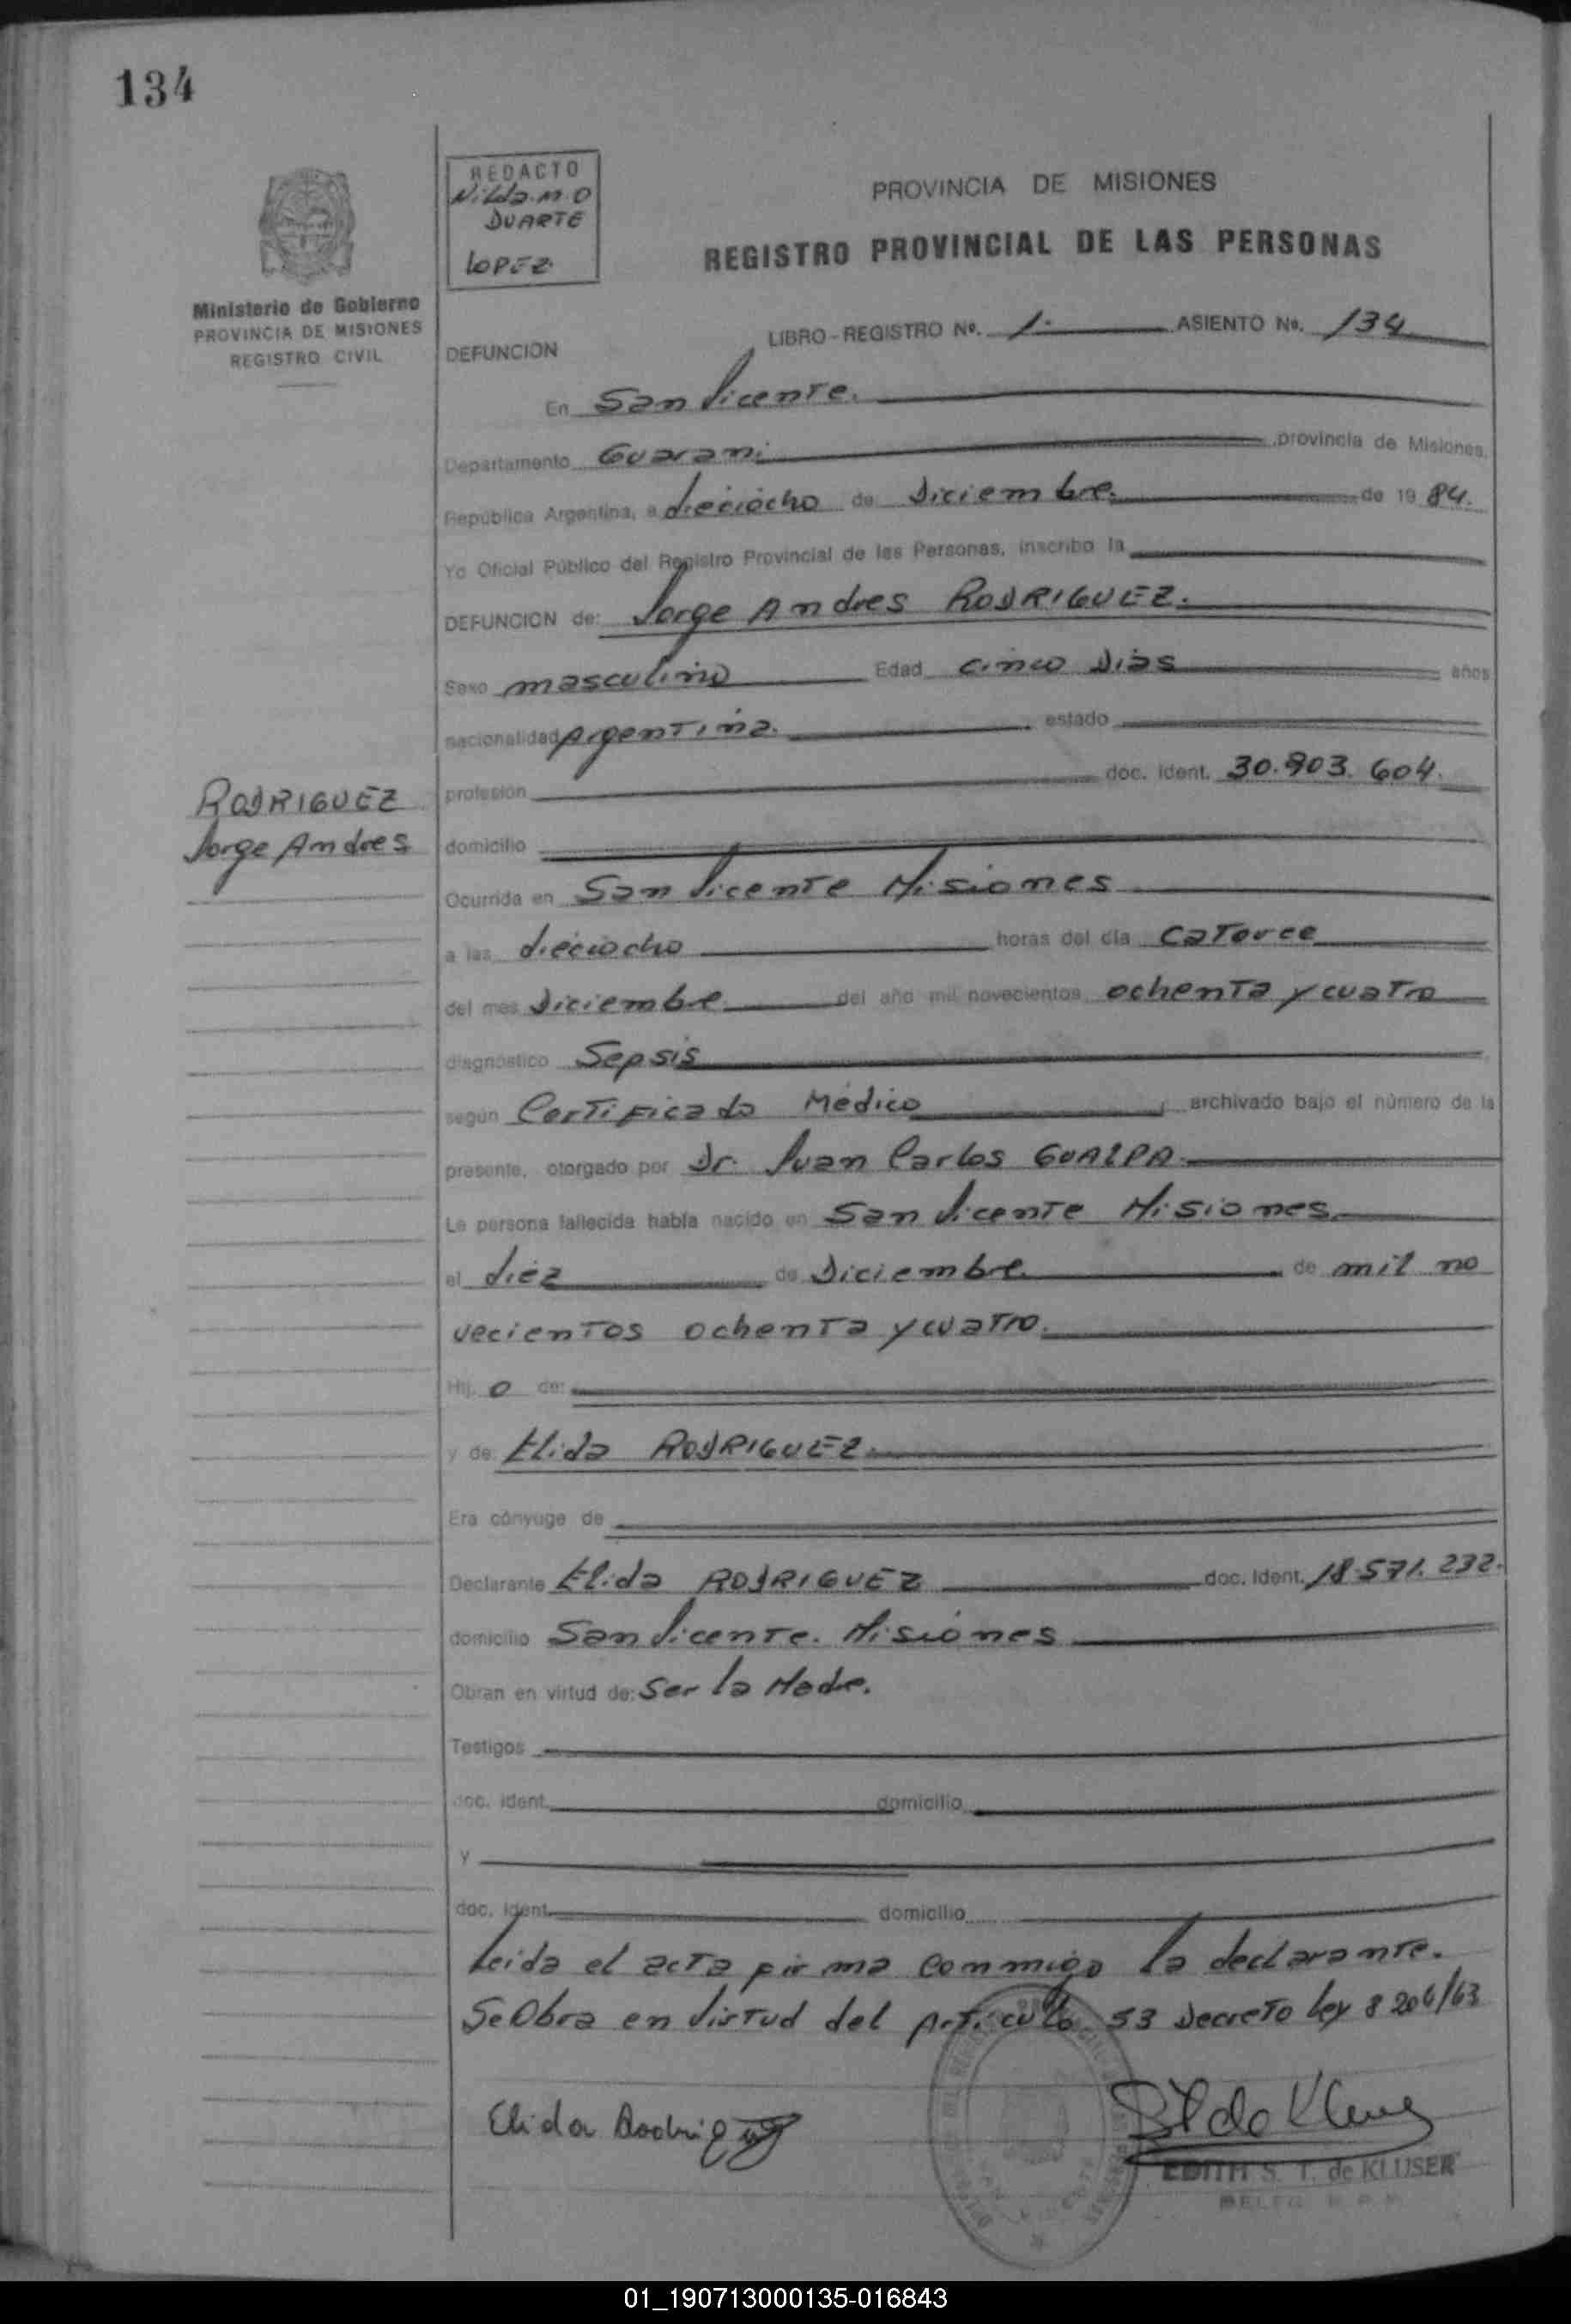 134
REDACTO
Nilda. M. O
DUARTE
LOPEZ
PROVINCIA DE MISIONES
REGISTRO PROVINCIAL DE LAS PERSONAS
Ministerio de Gobierno
PROVINCIA DE MISIONES
REGISTRO CIVIL
LIBRO - REGISTRO Nº. 1. ASIENTO No. 134
DEFUNCION
En San Vicente.
Departamento Guarani provincia de Misiones,
República Argentina, a dieciocho de Diciembre. de 19 84.
Yo Oficial Público del Registro Provincial de las Personas, inscribo la
DEFUNCION de: Jorge Andres RODRIGUEZ.
Sexo masculino Edad cinco Dias años
nacionalidad Argentina. estado
profesión doc. ident. 30.903.604.
RODRIGUEZ
Jorge Andres
domicilio
Ocurrida en San Vicente Misiones
a las dieciocho horas del día catorce
del mes Diciembre del año mil novecientos ochenta y cuatro
diagnóstico Sepsis
según Certificado Médico archivado bajo el número de la
presente, otorgado por Dr. Juan Carlos GUALPA
La persona fallecida había nacido en San Vicente Misiones
el diez de Diciembre de mil no
vecientos ochenta y cuatro.
Hij o de:
y de: Elida RODRIGUEZ.
Era cónyuge de
Declarante Elida RODRIGUEZ doc. Ident. 18.571.232.
domicilio San Vicente. Misiones
Obran en virtud de: Ser la Madre.
Testigos
doc. ident. domicilio
y
doc. ident. domicilio
Leida el acta firma conmigo la declarante.
Se Obra en Virtud del Articulo 53 Decreto Ley 8204/63
Elida Rodriguez
EDITH S. T. de KLUSER
01_190713000135-016843